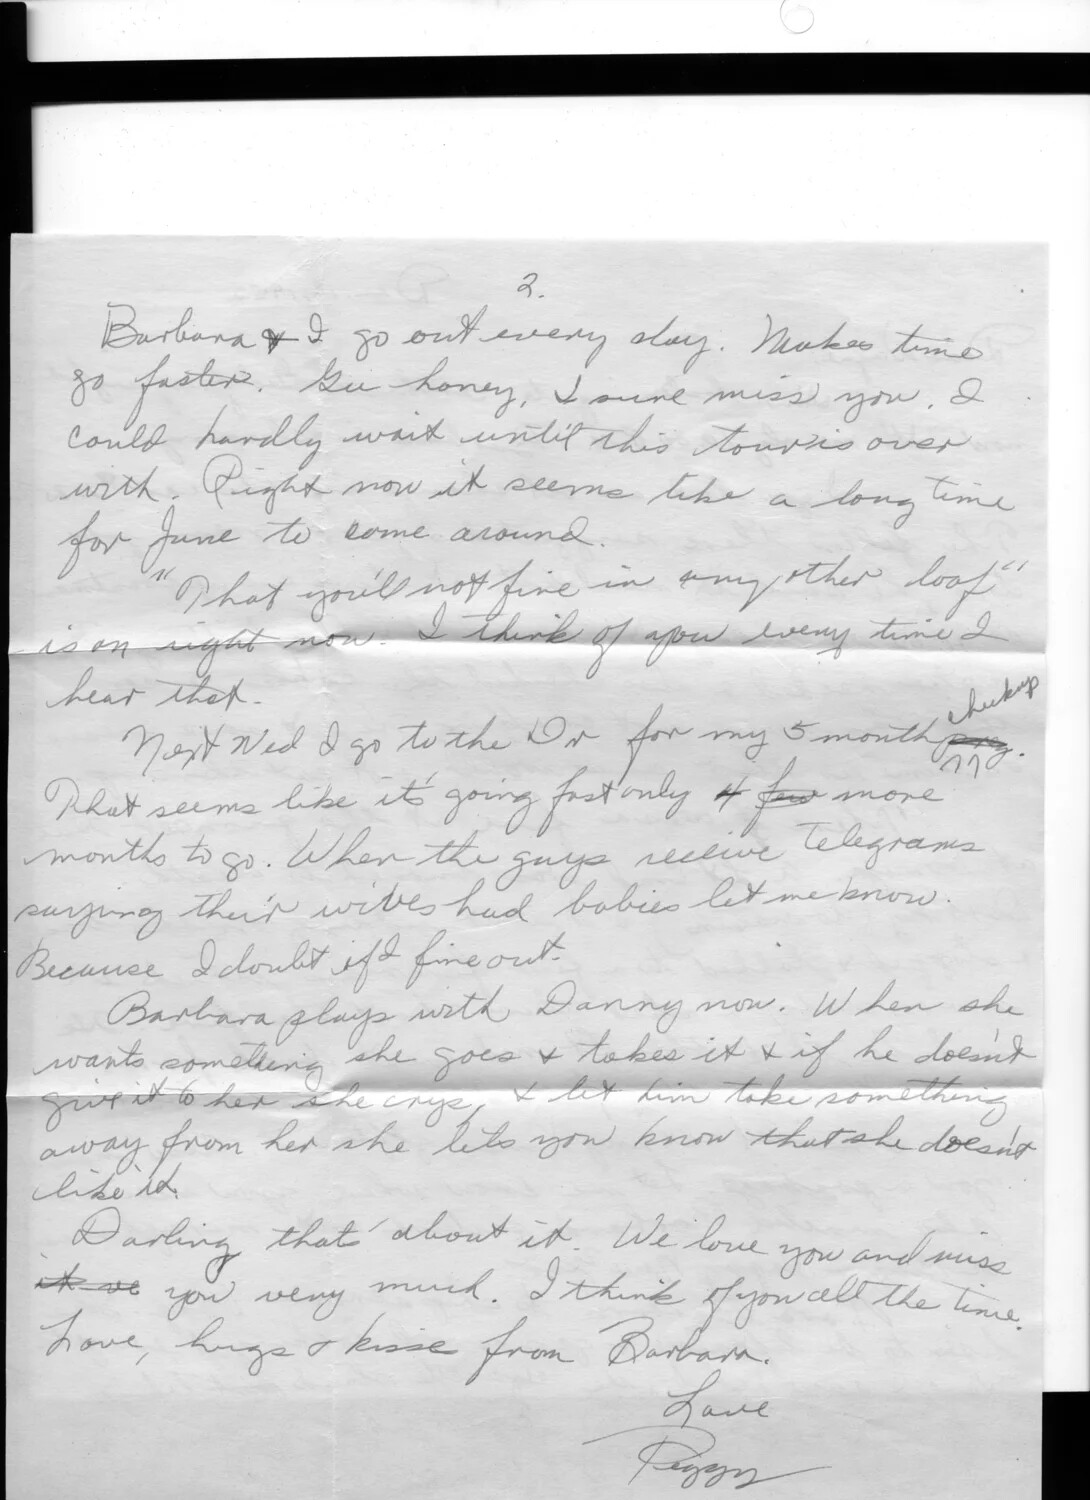 2.
Barbara & I go out every day. Makes time
go faster. Gee honey, I sure miss you. I
could hardly wait until this tour is over
with. Right now it seems like a long time
for June to come around.
"That you'll not fine in any other loaf"
is on right now. I think of you every time I
hear that.
checkup
Next Wed I go to the Dr for my 5 month preg.
That seems like it's going fast only 4 few more
months to go. When the guys receive telegrams
saying their wives had babies let me know.
Because I doubt if I fine out.
Barbara plays with Danny now. When she
wants something she goes & takes it & if he doesn't
give it to her she crys, & let him take something
away from her she lets you know that she doesn't
like it.
Darling that's about it. We love you and miss
it ve you very much. I think of you all the time.
Love, hugs & kisse from Barbara.
Love
Peggy